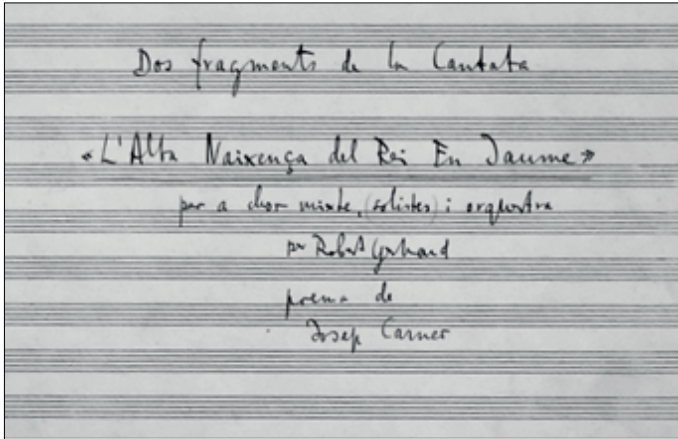 Dos fragments de la Cantata
«L'Alta Naixença del Rei En Jaume»
per a chor mixte, (solistes) i orquestra
per Robert Gerhard
poema de
Josep Carner